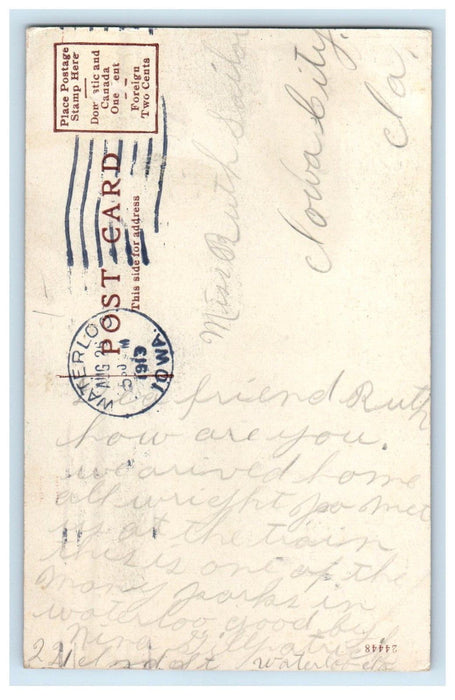 Place Postage
Stamp Here
Domestic and
Canada
One Cent
Foreign
Two Cents
POST CARD
This side for address
WATERLOO
AUG 26
1913
IOWA.
Miss Ruth
Iowa City,
Ia.
friend Ruth
how are you.
we arived home
all wright pa met
us at the train
this is one of the
many parks in
waterloo good by
Nina Gillpatrick
waterloo Ia
24448